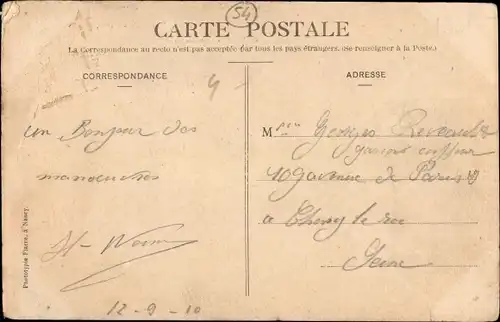 54
CARTE POSTALE
La Correspondance au recto n'est pas acceptée par tous les pays étrangers. (Se renseigner à la Poste.)
CORRESPONDANCE
ADRESSE
4
un Bonjour des
manoeuvres
12-9-10
Georges
garcon coiffeur
109 avenue de Paris
a Choisy le roi
Seine
Phototypie Fiaero, à Nancy.